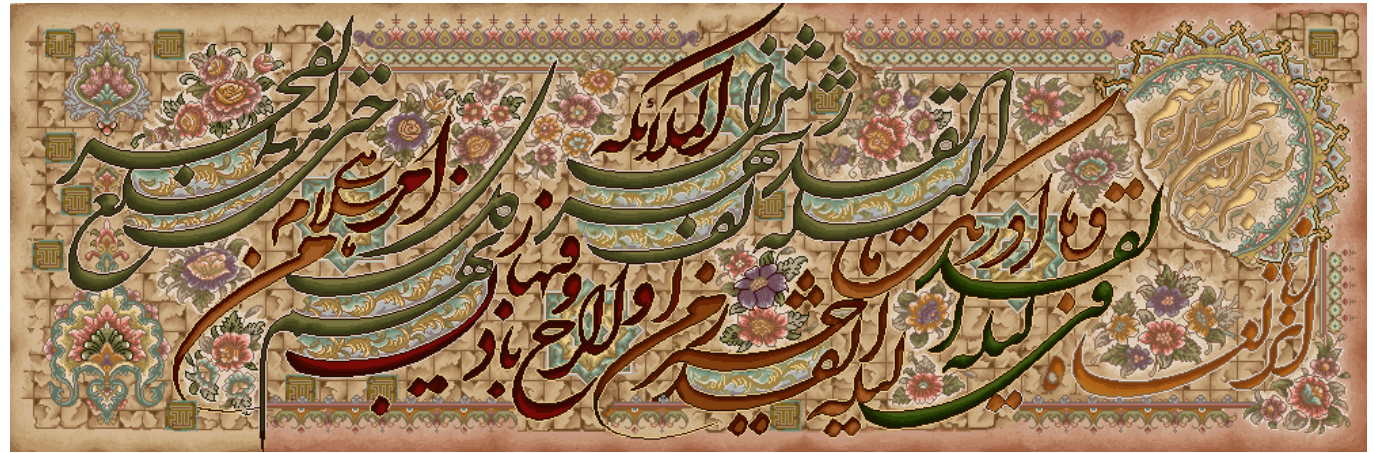 بسم الله الرحمن الرحيم
انا انزلناه في ليلة القدر
وما ادراك ما ليلة القدر
ليلة القدر خير من الف شهر
تنزل الملائكة والروح فيها باذن ربهم من كل امر
سلام هي حتى مطلع الفجر